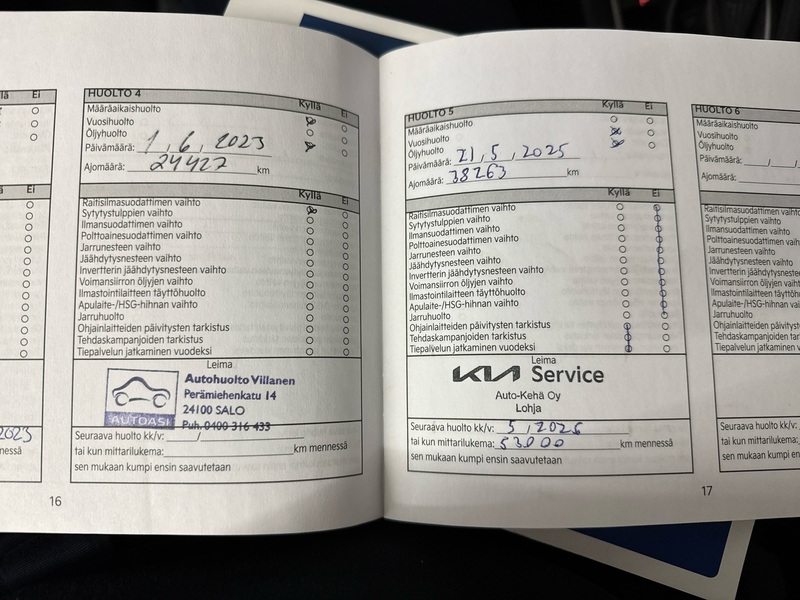 Ei
2023
nnessä
16
HUOLTO 4
Kyllä Ei
Määräaikaishuolto
Vuosihuolto
Öljyhuolto
Päivämäärä: 1, 6, 2023
Ajomäärä: 24427 km
Kyllä Ei
Raitisilmasuodattimen vaihto
Sytytystulppien vaihto
Ilmansuodattimen vaihto
Polttoainesuodattimen vaihto
Jarrunesteen vaihto
Jäähdytysnesteen vaihto
Invertterin jäähdytysnesteen vaihto
Voimansiirron öljyjen vaihto
Ilmastointilaitteen täyttöhuolto
Apulaite-/HSG-hihnan vaihto
Jarruhuolto
Ohjainlaitteiden päivitysten tarkistus
Tehdaskampanjoiden tarkistus
Tiepalvelun jatkaminen vuodeksi
Leima
AUTOASI
Autohuolto Villanen
Perämiehenkatu 14
24100 SALO
Puh. 0400 316 433
Seuraava huolto kk/v: /
tai kun mittarilukema: km mennessä
sen mukaan kumpi ensin saavutetaan
HUOLTO 5
Kyllä Ei
Määräaikaishuolto
Vuosihuolto
Öljyhuolto
Päivämäärä: 21, 5, 2025
Ajomäärä: 38263 km
Kyllä Ei
Raitisilmasuodattimen vaihto
Sytytystulppien vaihto
Ilmansuodattimen vaihto
Polttoainesuodattimen vaihto
Jarrunesteen vaihto
Jäähdytysnesteen vaihto
Invertterin jäähdytysnesteen vaihto
Voimansiirron öljyjen vaihto
Ilmastointilaitteen täyttöhuolto
Apulaite-/HSG-hihnan vaihto
Jarruhuolto
Ohjainlaitteiden päivitysten tarkistus
Tehdaskampanjoiden tarkistus
Tiepalvelun jatkaminen vuodeksi
Leima
KIA Service
Auto-Kehä Oy
Lohja
Seuraava huolto kk/v: 5, 2026
tai kun mittarilukema: 53000 km mennessä
sen mukaan kumpi ensin saavutetaan
17
HUOLTO 6
Määräaikaishuolto
Vuosihuolto
Öljyhuolto
Päivämäärä: / /
Ajomäärä:
Raitisilmasuodattimen vaihto
Sytytystulppien vaihto
Ilmansuodattimen vaihto
Polttoainesuodattimen vaihto
Jarrunesteen vaihto
Jäähdytysnesteen vaihto
Invertterin jäähdytysnesteen
Voimansiirron öljyjen vaihto
Ilmastointilaitteen täyttöhuo
Apulaite-/HSG-hihnan vaiht
Jarruhuolto
Ohjainlaitteiden päivitysten
Tehdaskampanjoiden tarkist
Tiepalvelun jatkaminen v
Seuraava huolto kk/v:
tai kun mittarilukema:
sen mukaan kumpi en